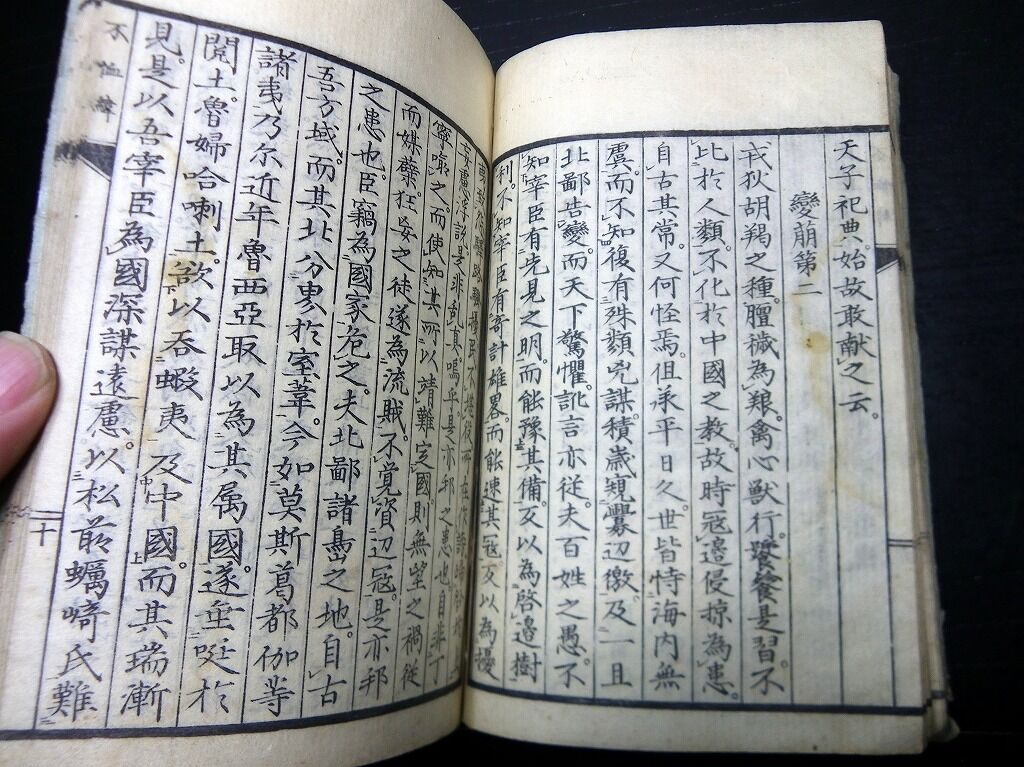 天子祀典。始故敢献之云。
變崩第二
戎狄胡羯之種。膻穢為艱。禽心獸行。饕餮是習。不
比於人類。不化於中國之教。故時冦邉侵掠為患。
自古其常。又何怪焉。但承平日久。世皆恃海内無
虞。而不知復有殊類兇謀。積歳覘釁辺徼。及一且
北鄙告變。而天下驚懼。訛言亦従。夫百姓之愚。不
知宰臣有先見之明。而能豫其備。反以為啓邉樹
利。不知宰臣有奇計雄畧。而能速其冦。反以為擾
妄慮浮説。是非乱真。嗚乎是亦邦之患也自非丁
寧喩之。而使知其所以靖難定國則無望之禍従
而媒糵狂妄之徒遂為流賊。不覚資辺冦。是亦邦
之患也。臣竊為國家危之。夫北鄙諸島之地。自古
吾方域。而其北分界於室葦。今如莫斯葛都伽等
諸夷乃尓近年魯西亞取以為其属國。遂垂涎於
閲土。魯婦哈喇土。欲以呑蝦夷及中國。而其瑞漸
見。是以吾宰臣為國深謀遠慮。以松前蠣崎氏難
不恤緯
十